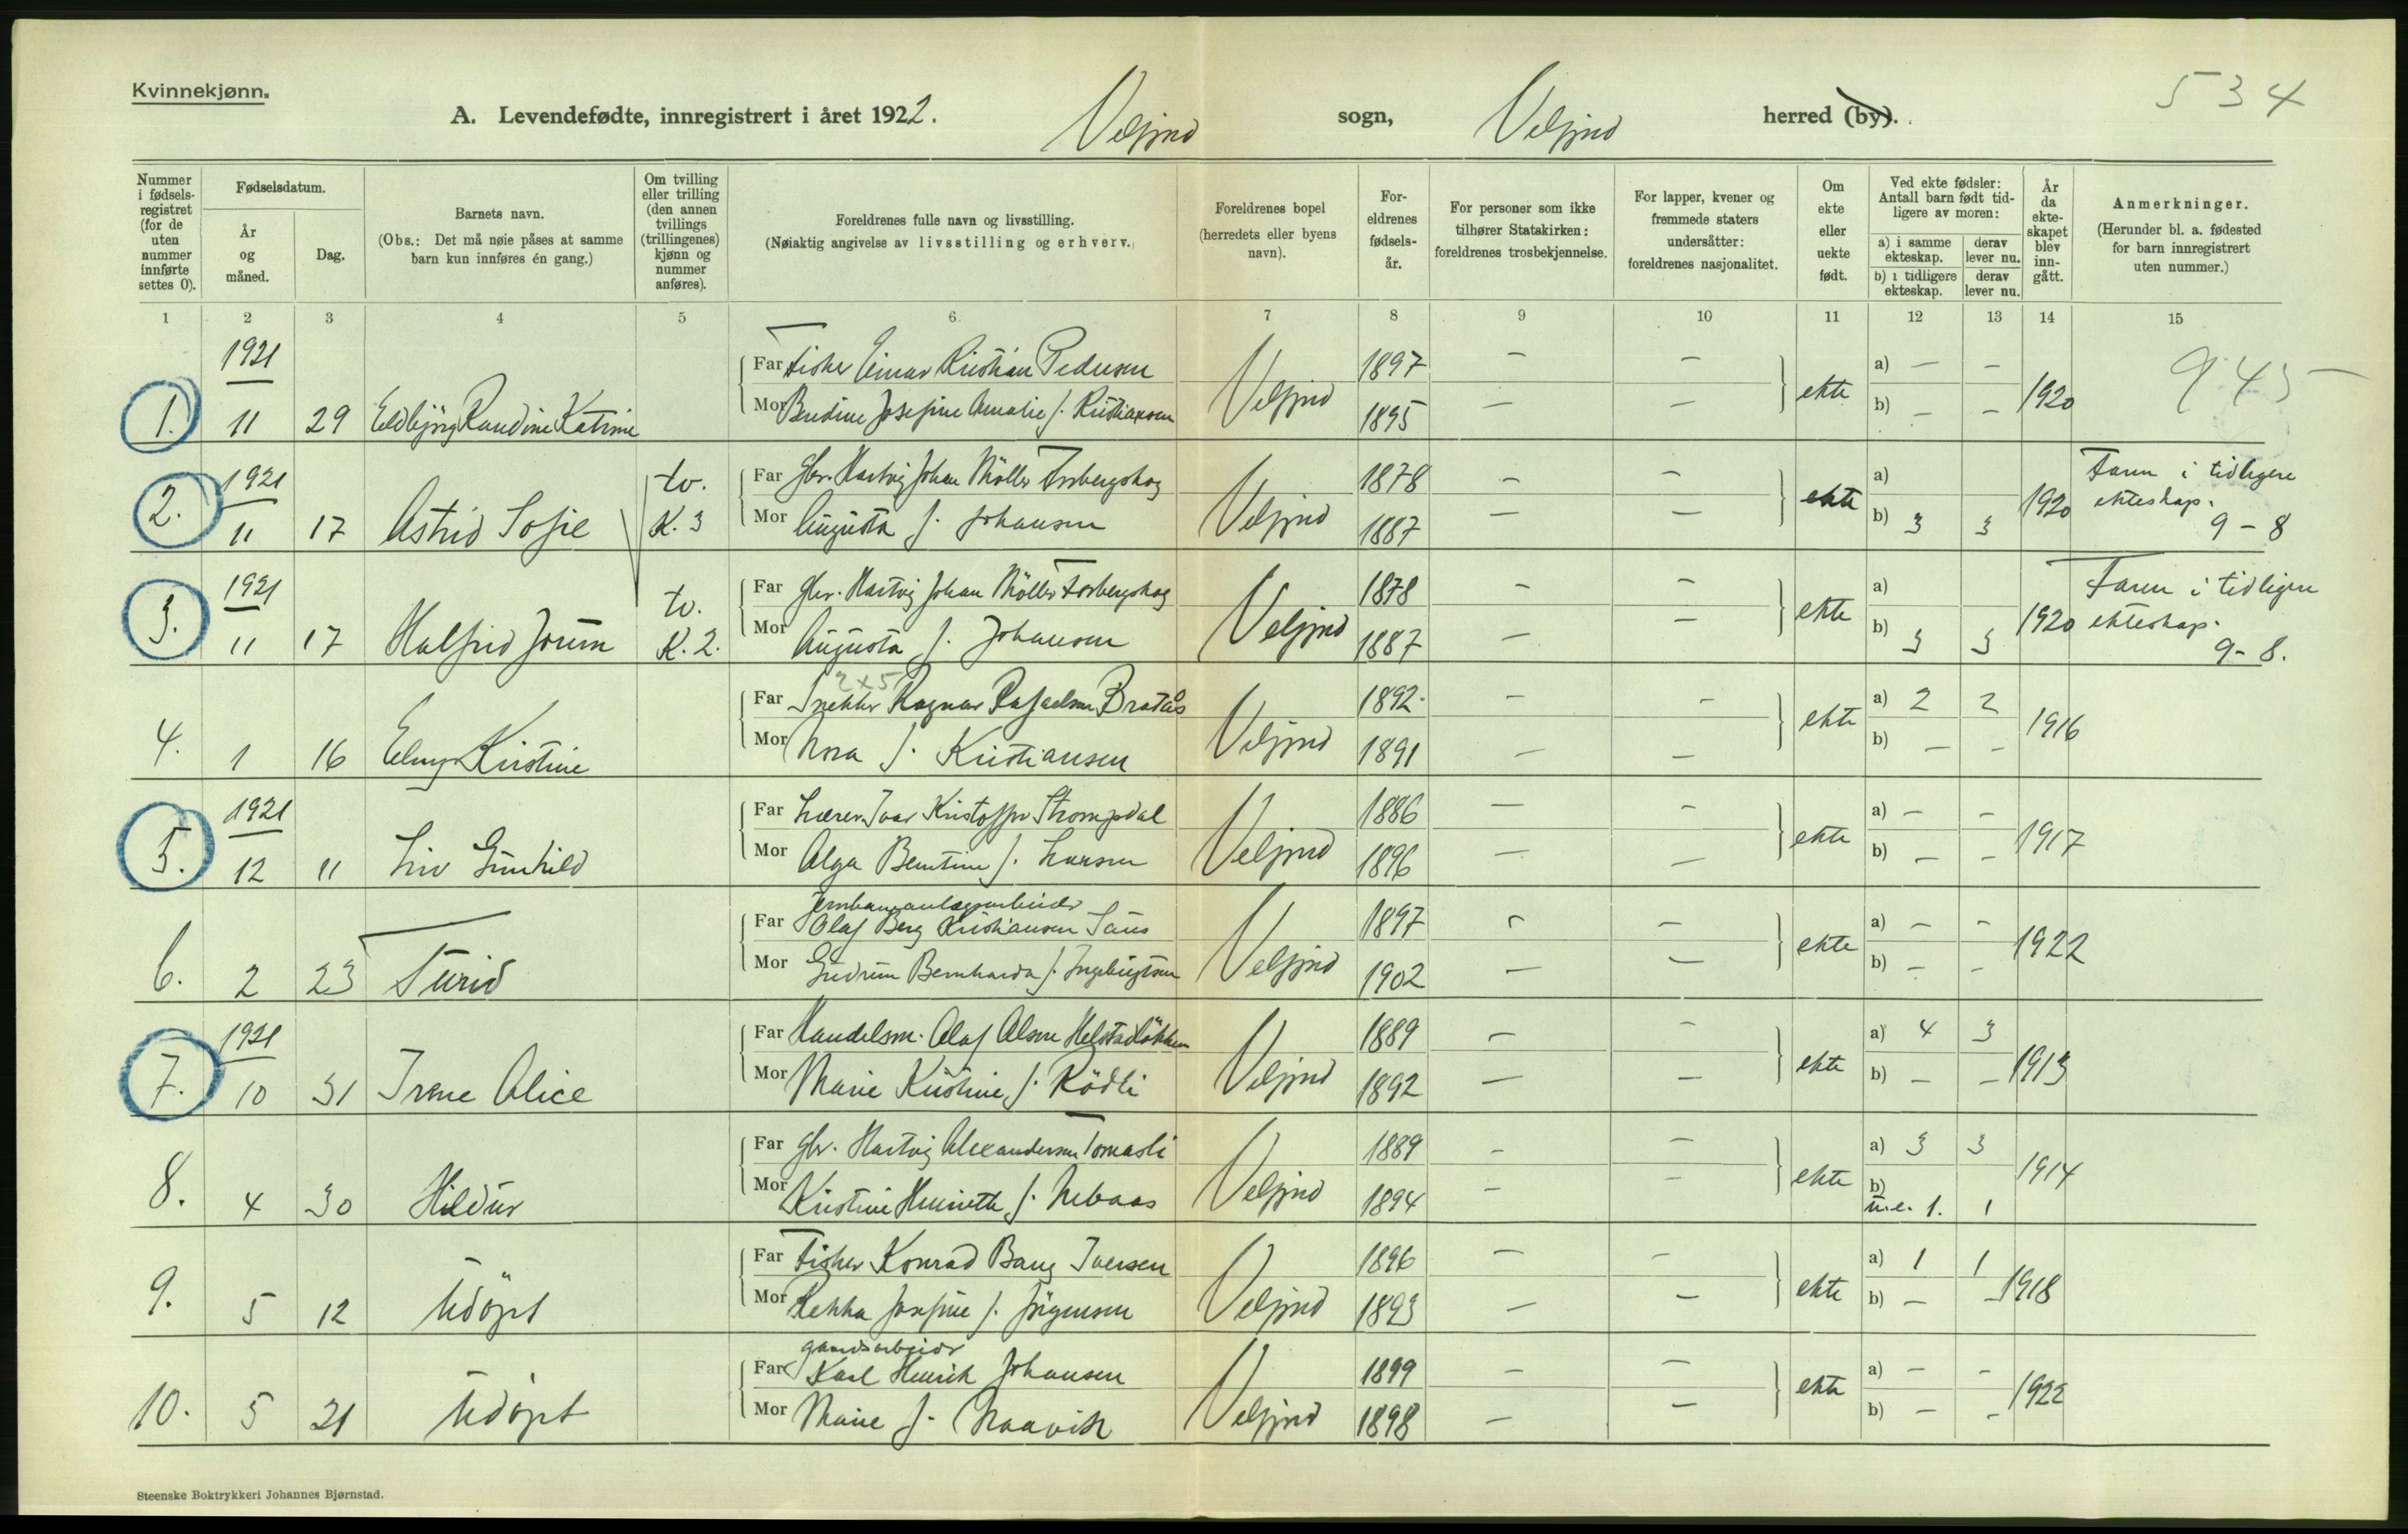 Kvinnekjønn.
534
A. Levendefødte, innregistrert i året 1922. Velfjord sogn, Velfjord herred (by).
Nummer i fødselsregistret (for de uten nummer innførte settes 0).
Fødselsdatum.
År og måned.
Dag.
Barnets navn.
(Obs.: Det må nøie påses at samme barn kun innføres én gang.)
Om tvilling eller trilling (den annen tvillings (trillingenes) kjønn og nummer anføres).
Foreldrenes fulle navn og livsstilling.
(Nøiaktig angivelse av livsstilling og erhverv.)
Foreldrenes bopel (herredets eller byens navn).
Foreldrenes fødselsår.
For personer som ikke tilhører Statskirken: foreldrenes trosbekjennelse.
For lapper, kvener og fremmede staters undersåtter: foreldrenes nasjonalitet.
Om ekte eller uekte født.
Ved ekte fødsler: Antall barn født tidligere av moren:
a) i samme ekteskap. derav lever nu.
b) i tidligere ekteskap. derav lever nu.
År da ekteskapet blev inngått.
Anmerkninger.
(Herunder bl. a. fødested for barn innregistrert uten nummer.)
1 2 3 4 5 6 7 8 9 10 11 12 13 14 15
1921
Far Fisker Einar Kristian Pedersen 1897 — — a) — —
1. 11 29 Eldbjörg Randine Katrine Mor Bendine Josefine Amalie f. Kristiansen Velfjord 1895 — — ekte b) — — 1920 945
1921 tv. Far gbr. Hartvig Johan Möller Forsbergskog 1878 — — a) Faren i tidligere
2. 11 17 Astrid Sofie K. 3 Mor Augusta f. Johansen Velfjord 1887 — — ekte b) 3 3 1920 ekteskap.
9 – 8
1921 tv. Far gbr. Hartvig Johan Möller Forsbergskog 1878 — — a) Faren i tidligere
3. 11 17 Halfrid Jorun K. 2. Mor Augusta f. Johansen Velfjord 1887 — — ekte b) 3 3 1920 ekteskap.
9 – 8.
2x5
Far Snekker Ragnar Rafaelsen Bratås 1892. — — a) 2 2
4. 1 16 Elny Kirstine Mor Nora f. Kristiansen Velfjord 1891 — — ekte b) — — 1916
1921 Far Lærer Ivar Kristoffer Strompdal 1886 — — a) — —
5. 12 11 Liv Gunhild Mor Olga Berntine f. Larsen Velfjord 1896 — — ekte b) — — 1917
Jernbaneanlægsarbeider
Far Olaf Berg Kristiansen Saus 1897 — — a) — —
6. 2 23 Turid Mor Gudrun Bernharda f. Ingebrigtsen Velfjord 1902 — — ekte b) — — 1922
1921 Far Handelsm. Olaf Olsen Helstadlökken 1889 — — a) 4 3
7. 10 31 Irene Alice Mor Marie Kristine f. Rödli Velfjord 1892 — — ekte b) — — 1913
Far gbr. Hartvig Alexandersen Tomasli 1889 — — a) 3 3
8. 4 30 Hildur Mor Kristine Henriette f. Nebaas Velfjord 1894 — — ekte b) u.e. 1. 1 1914
Far Fisker Konrad Bang Iversen 1896 — — a) 1 1
9. 5 12 Udöpt Mor Rekka Josefine f. Jörgensen Velfjord 1893 — — ekte b) — — 1918
gaardsarbeider
Far Karl Henrik Johansen 1899 — — a) — —
10. 5 21 Udöpt Mor Marie f. Naavik Velfjord 1898 — — ekte b) — — 1922
Steenske Boktrykkeri Johannes Bjørnstad.